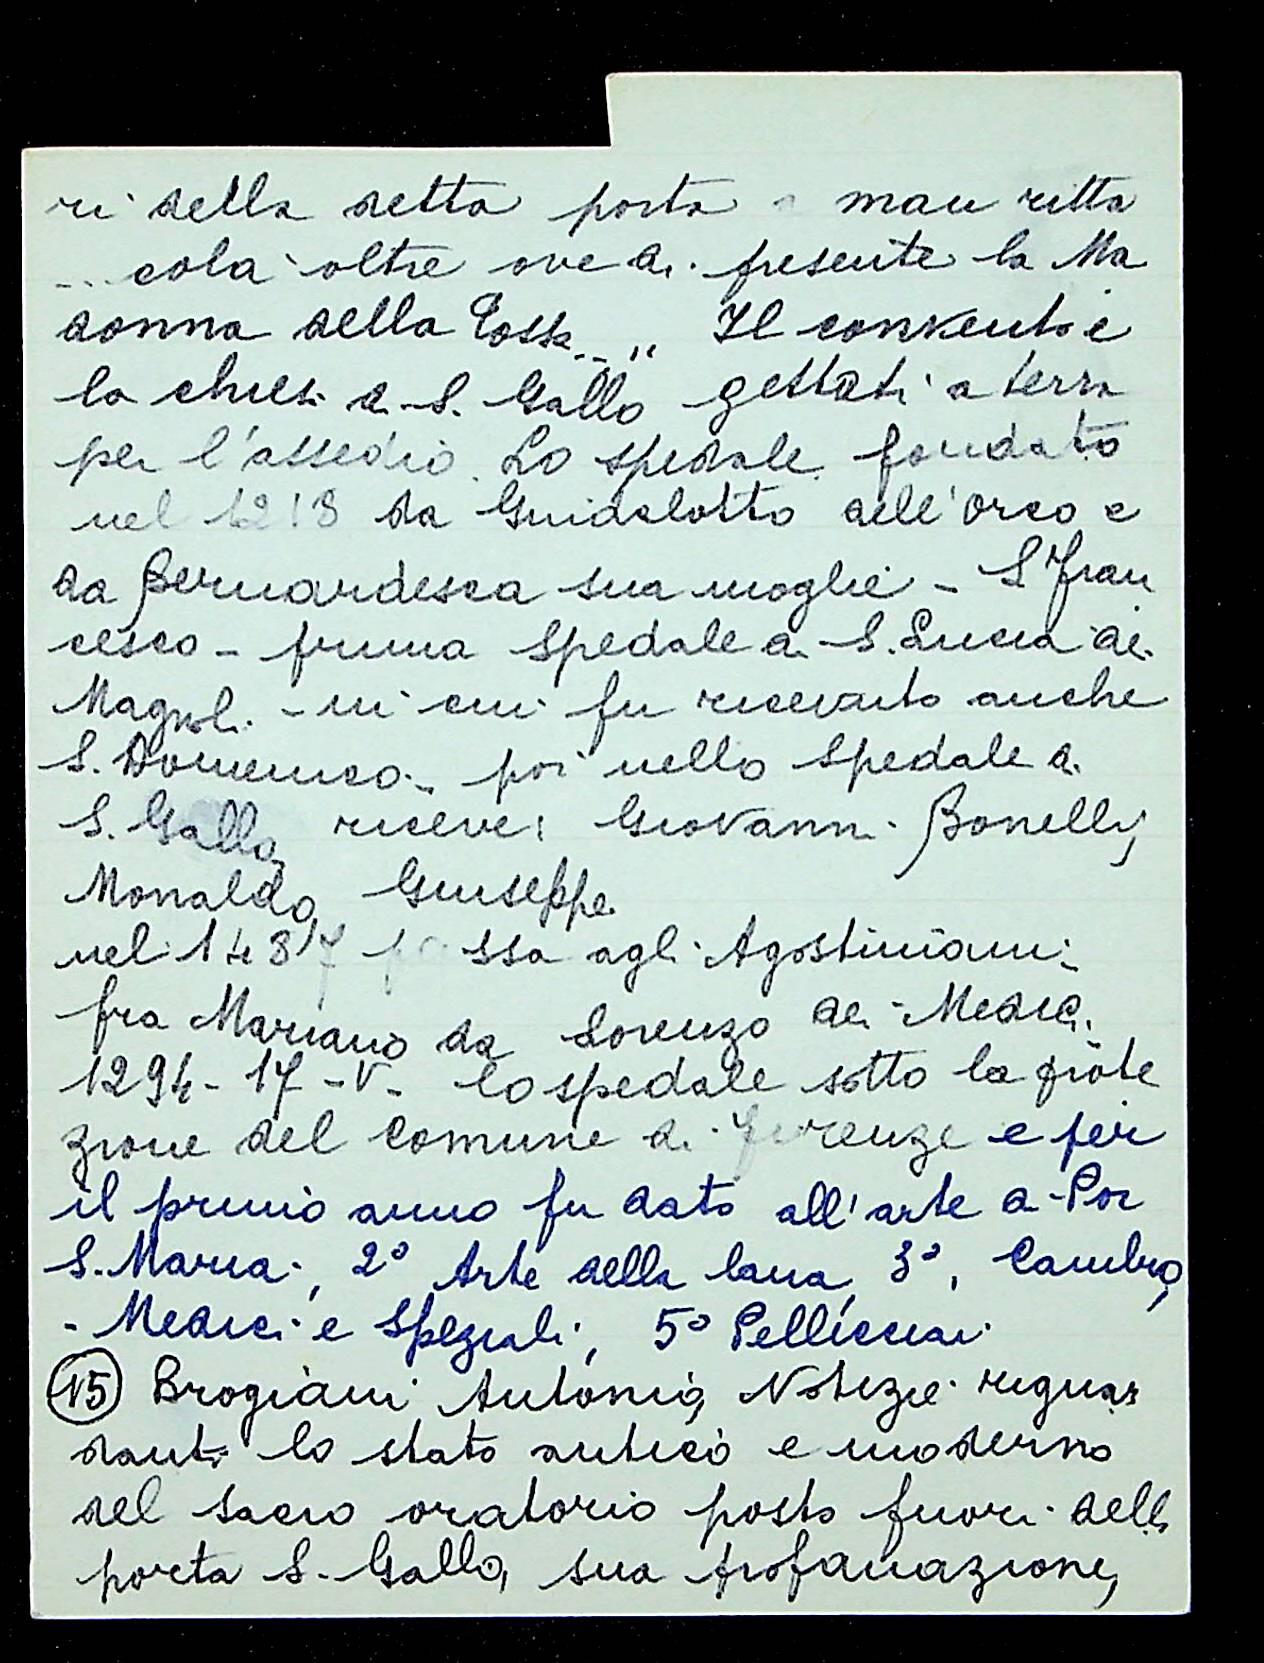 ri della detta porta a man ritta
... colà oltre ove di presente la Ma
donna della Toss... " Il convento e
la chiesa di S. Gallo gettati a terra
per l'assedio. Lo spedale fondato
nel 1218 da Guidalotto dell'Orco e
da Bernardesca sua moglie - S Fran
cesco - prima spedale di S. Lucia dei
Magnoli - in cui fu ricevuto anche
S. Domenico - poi nello spedale di
S. Gallo riceve: Giovanni Bonelli,
Monaldo, Giuseppe.
nel 1487 passa agli Agostiniani
fra Mariano da Lorenzo dei Medici.
1294 - 17 - V - lo spedale sotto la prote
zione del Comune di Firenze e per
il primio anno fu dato all'arte di Por
S. Maria, 2° Arte della lana, 3°, Cambio,
- Medici e Speziali, 5° Pellicciai
(15) Brogiani Antonio, Notizie riguar
danti lo stato antico e moderno
del sacro oratorio posto fuori della
porta S. Gallo, sua profanazione,